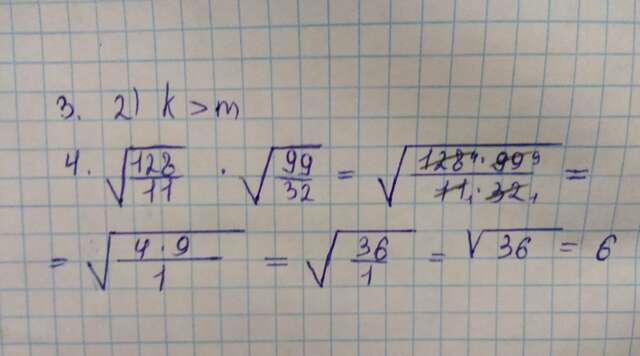 3. 2) k > m
4. √(128/11) · √(99/32) = √((128⁴ · 99⁹)/(11₁ · 32₁)) =
= √((4 · 9)/1) = √(36/1) = √36 = 6